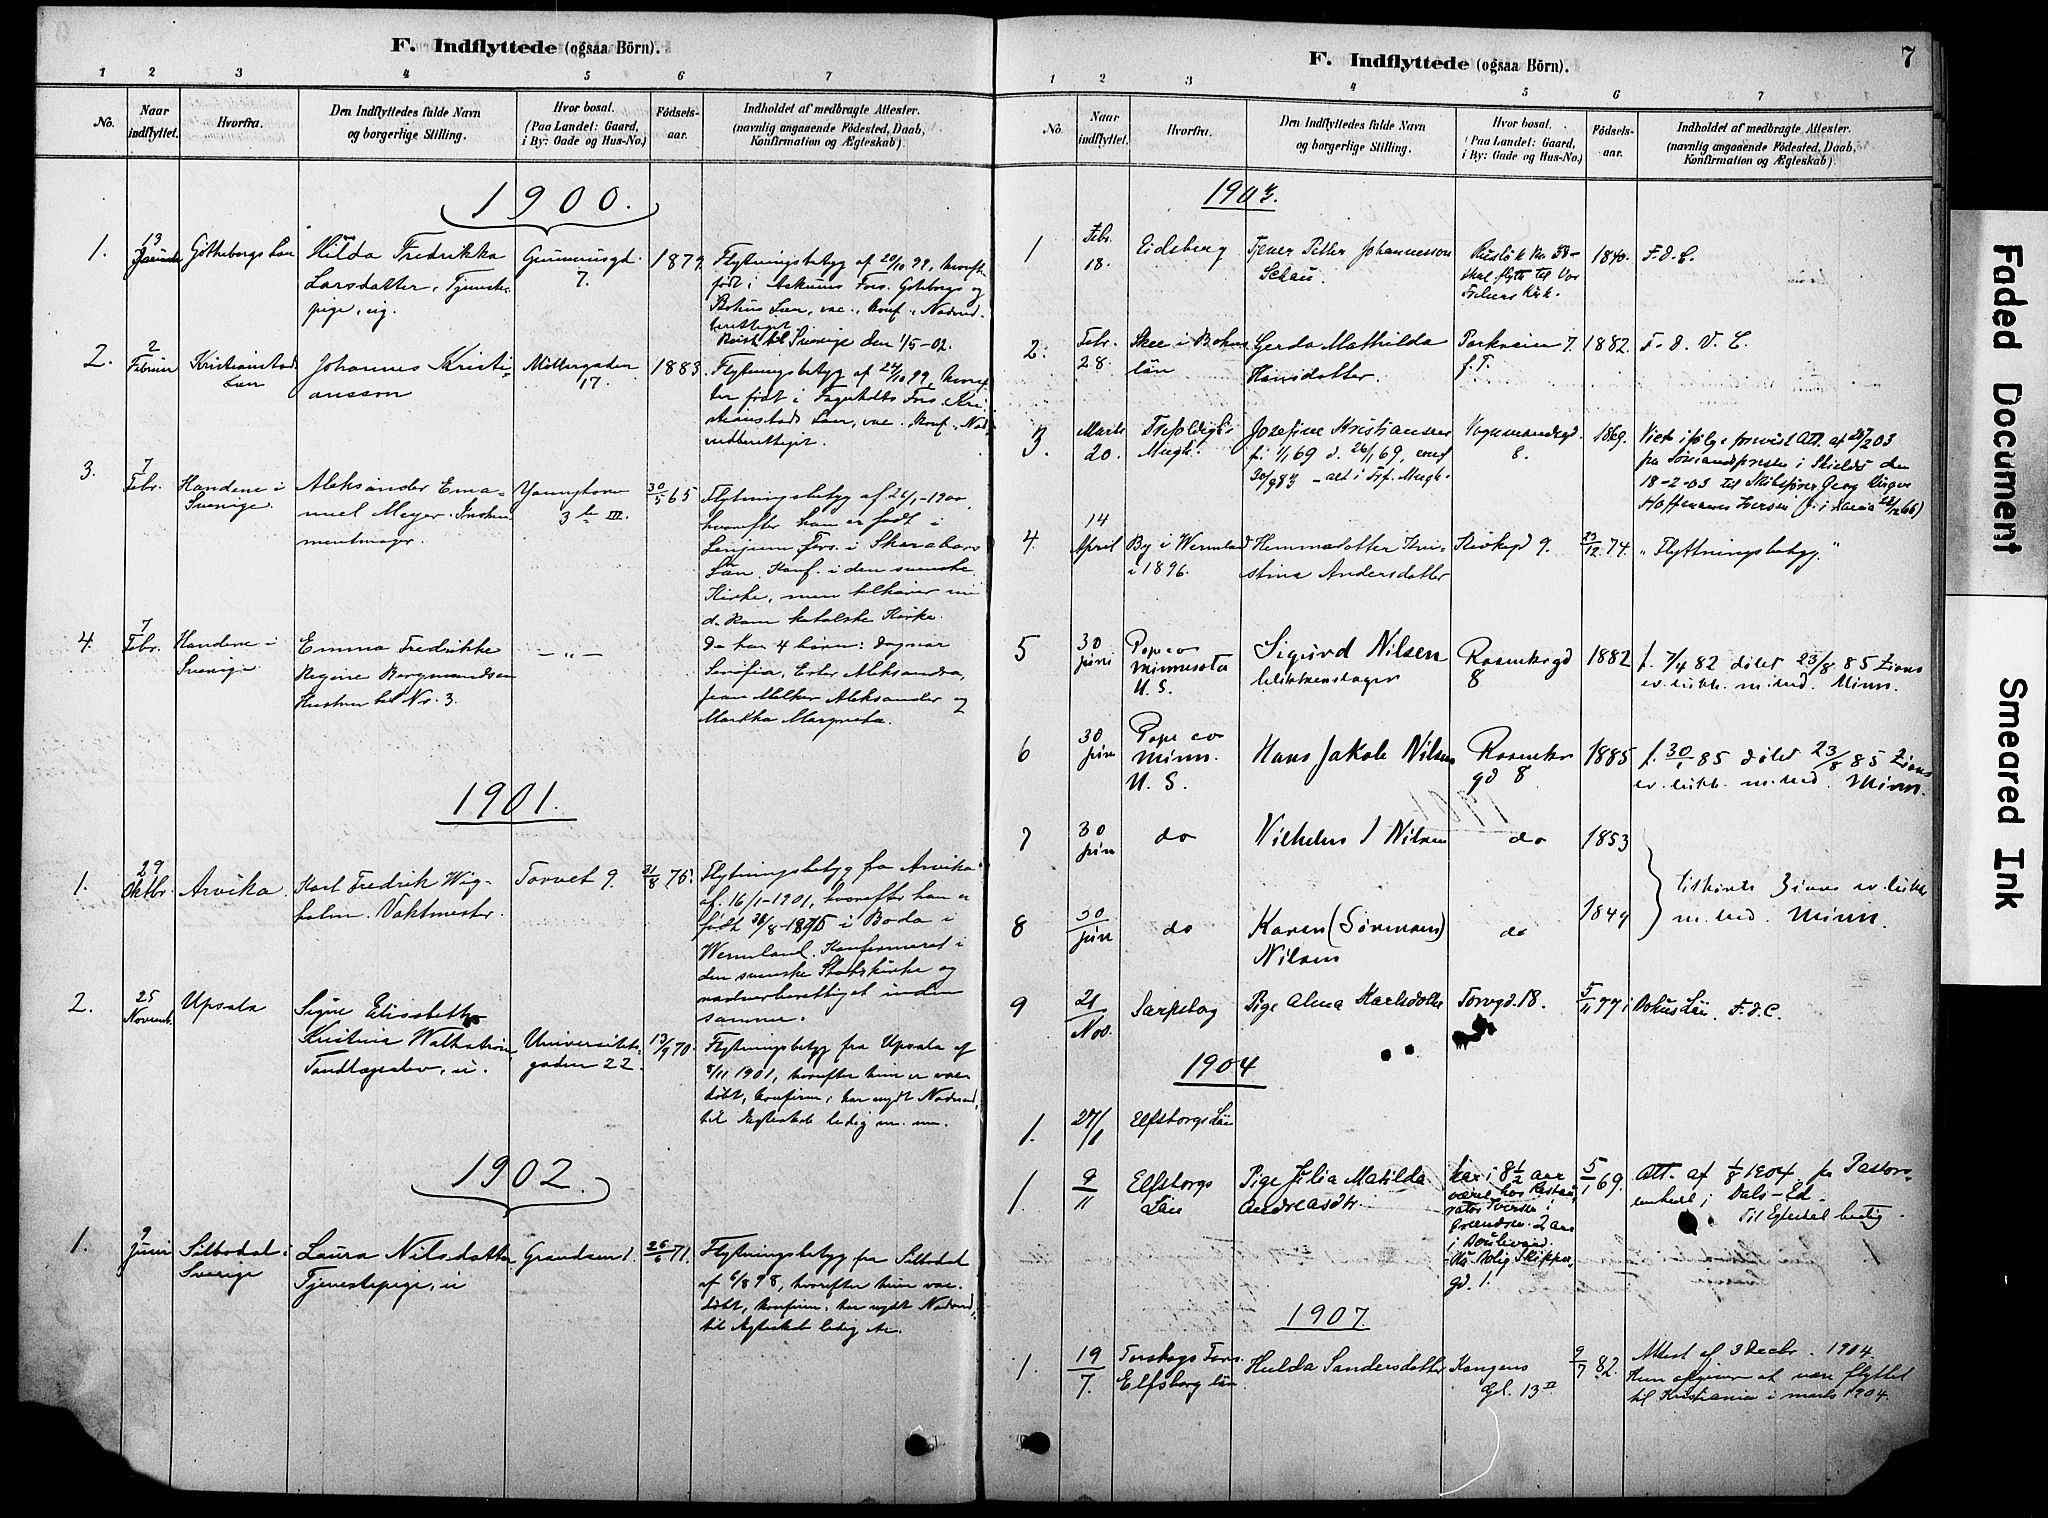 F. Indflyttede (ogsaa Börn).
1 2 3 4 5 6 7
No.
Naar indflyttet.
Hvorfra.
Den Indflyttedes fulde Navn
og borgerlige Stilling.
Hvor bosat.
(Paa Landet: Gaard,
i By: Gade og Hus-No.)
Födsels-
aar.
Indholdet af medbragte Attester.
(navnlig angaaende Födested, Daab,
Konfirmation og Ægteskab).
1900.
1. 13 Götheborgs Län Hilda Fredrikka 7. 1879. Flytningsbetyg af 20/10 99, hvorefter
Larsdatter, Tjeneste- født i Askums Fors. Göteborgs og
pige, ug. Bohus Län, vac., konf., Nadverd-
berettiget.
Reist til Sverige den 1/5-02.
2. 2 Februar Kristianstad Län Johannes Kristi- Møllergaden 17 1883. Flytningsbetyg af 24/10 99, hvoref-
ansson ter født i Fors. Kri-
stianstads Län, vac. konf. Nad-
verdberettiget.
3. 7 Febr. Handene i Sverige Aleksander Ema- Youngtorvet 3 III. 30/5 65 Flytningsbetyg af 26/1-1900,
nuel Meyer. Instru- hvorefter han er født i
mentmager. Fors. i Skaraborgs
Län. Konf. i den svenske
Kirke, men tilhører nu
d. Rom. katolske Kirke.
4. 7 Febr. Handene i Sverige Emma Fredrikke — „ — De har 4 børn: Dagmar
Regine Bergmundsen Sarafia, Ester Aleksandra,
Hustru til Nr. 3. Jean Melker Aleksander og
Martha Margreta.
1901.
1. 29 Oktbr. Arvika. Karl Fredrik Wig- Torvet 9. 31/8 75. Flytningsbetyg fra Arvika
holm. Vaktmester. af 16/1-1901, hvorefter han er
født 31/8-1875 i Boda i
Wermland. Konfirmeret i
den svenske Statskirke og
nadverberettiget inden
samme.
2. 25 Novemb. Upsala Signe Elisabeth
Kristina Wallström Universitets- 13/9 70. Flytningsbetyg fra Upsala af
Tandlægeelev, u. gaden 22 8/11 1901, hvorefter hun er vac.
døbt, konfirm., har nydt Nadverd,
til Ægteskab ledig m. m.
1902.
1. 9 Juni Silbodal i Sverige Laura Nilsdatter Grændsen 1. 26/6 71. Flytningsbetyg fra Silbodal
Tjenestepige, u af 6/8 98, hvorefter hun vac.
døbt, konfirm. har nydt Nadverd,
til Ægteskab ledig etc.
7
F. Indflyttede (ogsaa Börn).
1 2 3 4 5 6 7
No.
Naar
indflyttet.
Hvorfra.
Den Indflyttedes fulde Navn
og borgerlige Stilling.
Hvor bosat.
(Paa Landet: Gaard,
i By: Gade og Hus-No.)
Födsels-
aar.
Indholdet af medbragte Attester.
(navnlig angaaende Födested, Daab,
Konfirmation og Ægteskab).
1903.
1 Febr. 18. Eidsberg Tjener Petter Johannesson 1840. F. d. C.
skal flytte til Vor
Frelsers Kirk.
2. Febr. 28. Skee i Bohus län Gerda Mathilda Parkveien 7. 1882. F. d. V. C.
Hansdatter. f. T.
3. Marts 20. Trefoldigh. Josefine Kristiansen Vognmandsgd. 8. 1869. Viet ifølge forevist Att. af 25/2 03
Menigh. f. 1/1 69 d. 26/1 69, conf.
18-2-03 til Skibsfører Georg
4. 14 April By i Wermland Hemmadotter Kri- Kirkegd 9. 23/12 74. „Flyttningsbetyg."
i 1896. stina Andersdotter
5 30 juni Pope co Sigurd Nilsen Rosenkrgd 8 1882 f. 7/4 82 døbt 23/8 85 Zions
Minnesota blikkenslager ev. luth. m.hed. Minn.
U. S.
6 30 juni Pope co Hans Jakob Nilsen Rosenkr 1885 f. 30/1 85 døbt 23/8 85 Zions
Minn. gd 8 ev. luth. m.hed. Minn.
U. S.
7 30 juni do Vilhelm I Nilsen do 1853
8 30 juni do Karen (Sörensen) do 1849 tilhørte Zions ev. luth.
Nilsen m.hed. Minn.
9 21 Nov. Sarpsborg Pige Alma Karlsdotter Torvgd. 18. 5/11 77 i Bohus Län. F. d. C.
1904
1. 27/1 Elfsborgs Län
1. 9/11 Elfsborgs Pige Julia Matilda har i 8 1/2 aar 5/1 69. Att. af 1/8 1904 fr. Pastors-
Län Andreasdtr. været hos Restau- embedet i Dals-Ed.
ratör Iversen i Til Egteskab ledig.
Grændsen. 2 aar
i Boulevard.
Nu bolig Skipper-
gd. 1.
1907.
1. 19/7. Torskogs Fors. Hulda Sandersdotter Kongens 9/7 82. Attest af 3 Decbr. 1904.
Elfsborg län Gd. 13 II Hun opgiver at være flyttet
til Kristiania i marts 1904.
Faded Document
Smeared Ink